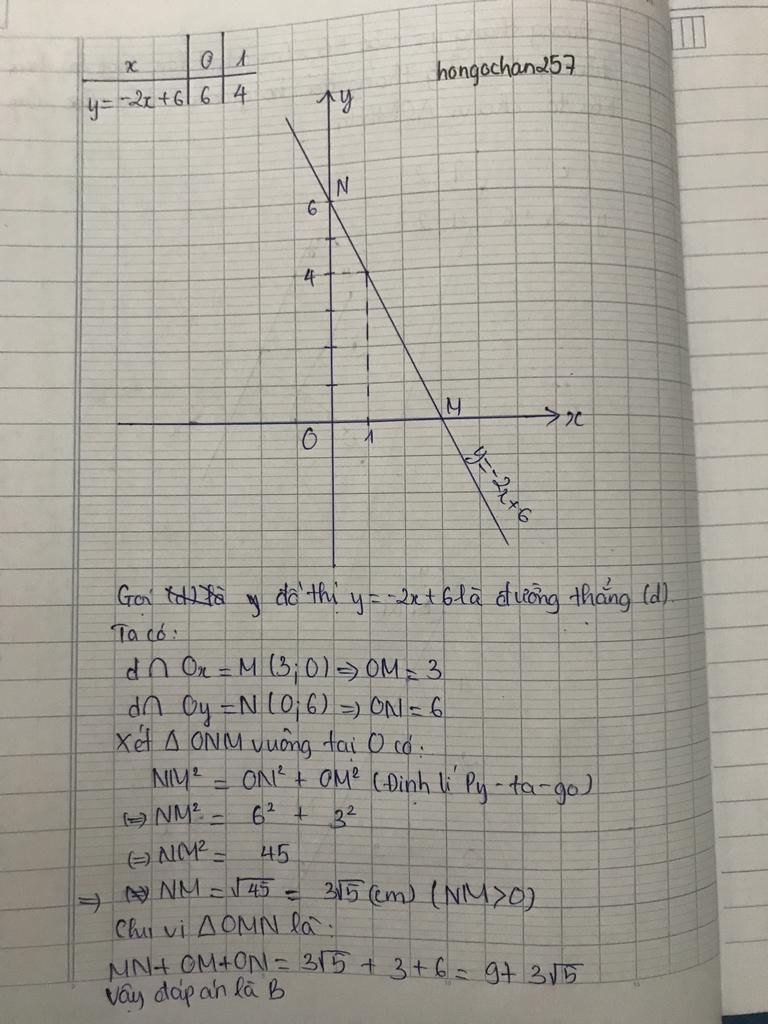 x 0 1
y = -2x + 6 6 4
hongochan257
y
N
6
4
M
O
1
x
y = -2x + 6
Gọi đồ thị y = -2x + 6 là đường thẳng (d).
Ta có:
d ∩ Ox = M (3;0) ⇒ OM = 3
d ∩ Oy = N (0;6) ⇒ ON = 6
Xét Δ ONM vuông tại O có:
NM² = ON² + OM² (Định lí Py-ta-go)
⇔ NM² = 6² + 3²
⇔ NM² = 45
⇒ NM = √45 = 3√5 (cm) (NM > 0)
Chu vi Δ OMN là:
MN + OM + ON = 3√5 + 3 + 6 = 9 + 3√5
Vậy đáp án là B